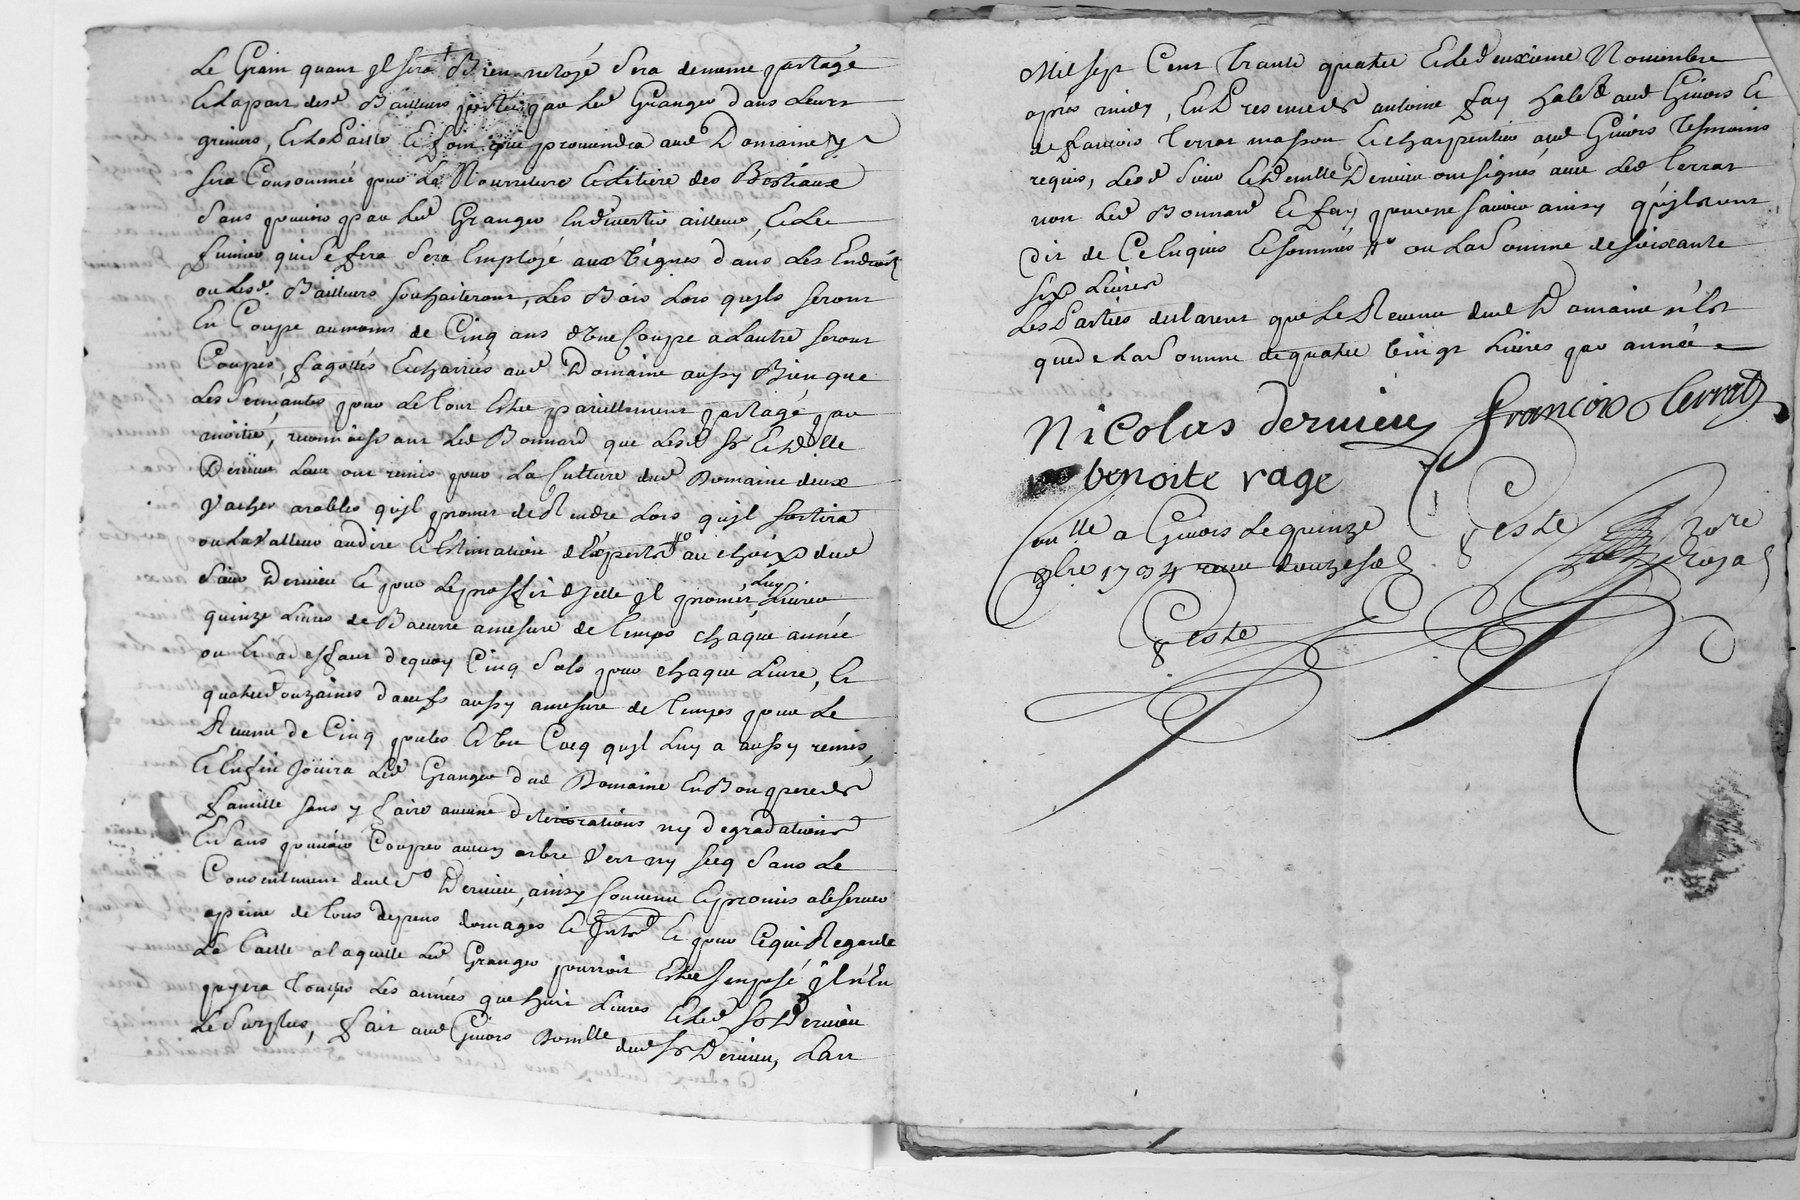 Le Grain quant jl sera Bien netoyé sera demême partagé
Et la part desd Bailleurs portée par Led Granger dans Leurs
greniers, Et La Paille Et foin que proviendra aud Domaine y
sera Consommée pour La Nourriture Et Litiere des Bestiaux
sans pouvoir par Led Granger En divertir ailleur, Et Le
fumier qui se fera sera Employé aux Vignes dans Les Endroits
ou Lesd. Bailleurs souhaiteront, Les Bois Lors quyls seront
En Coupe aumoins de Cinq ans d'Une Coupe a Lautre seront
Coupés, fagottés Et charriés aud Domaine aussy Bien que
Les sermantes pour Le tout Estre pareillement partagé par
moitié, reconnaissant Led Bonnard que Lesd Sr Et Dlle
Derrieu Luy ont remis pour La Culture dud Domaine deux
Vaches arables qu'jl promet de Rendre Lors qu'jl sortira
ou La Valleur au dire Et Estimation d'Experts au choix dud
Sieur Derrieu Et pour Le proffit d'jelle jl promet Luy Livrer
quinze Livres de Baeurre amesure de temps chaque année
ou Et a deffaut dequoy Cinq Sols pour chaque Livre, Et
quatre douzaines d'aeufs aussy amesure de temps pour Le
Revenu de Cinq poules Et Un Cocq qu'jl Luy a aussy remis,
Et Enfin Joüira Led Granger dud Domaine En Bon pere de
famille sans y faire aucune deteriorations ny degradations
Et sans pouvoir Couper aucun arbre Vert ny secq sans Le
Consentement dud Sr Derrieu, ainsy Convenu Et promis observer
apeine de tous depens domages Et Intrs Et pour Ce qui Regarde
La taille a laquelle Led Granger pourroit Estre Jmposé jl n'En
payera toutes Les années que huit Livres Et Led Sr Derrieu
Le surplus, fait aud Givors Domlle dud Sr Derrieu, L'an
Mil sept Cent trante quatre Et Le deuxieme Novembre
apres midy, En Presence de antoine fay habt aud Givors Et
de francois terrat masson Et charpentier aud Givors tesmoins
requis, Lesd Sieur Et Demlle Derrieu ont signés avec Led terrat
non Led Bonnard Et fay pour ne sçavoir ainsy qu'jls ont
Dit de Ce Enquis Et sommés ou La Somme de soixante
six Livres
Les Parties declarent que Le Revenu dud Domaine n'Est
que de La Somme de quatre Vingt Livres par année
Nicolas derrieu francois terrat
benoite rage
Conllé a Givors Le quinze
9bre 1734 reçu douze sols
Geste
Geste Nore Royal